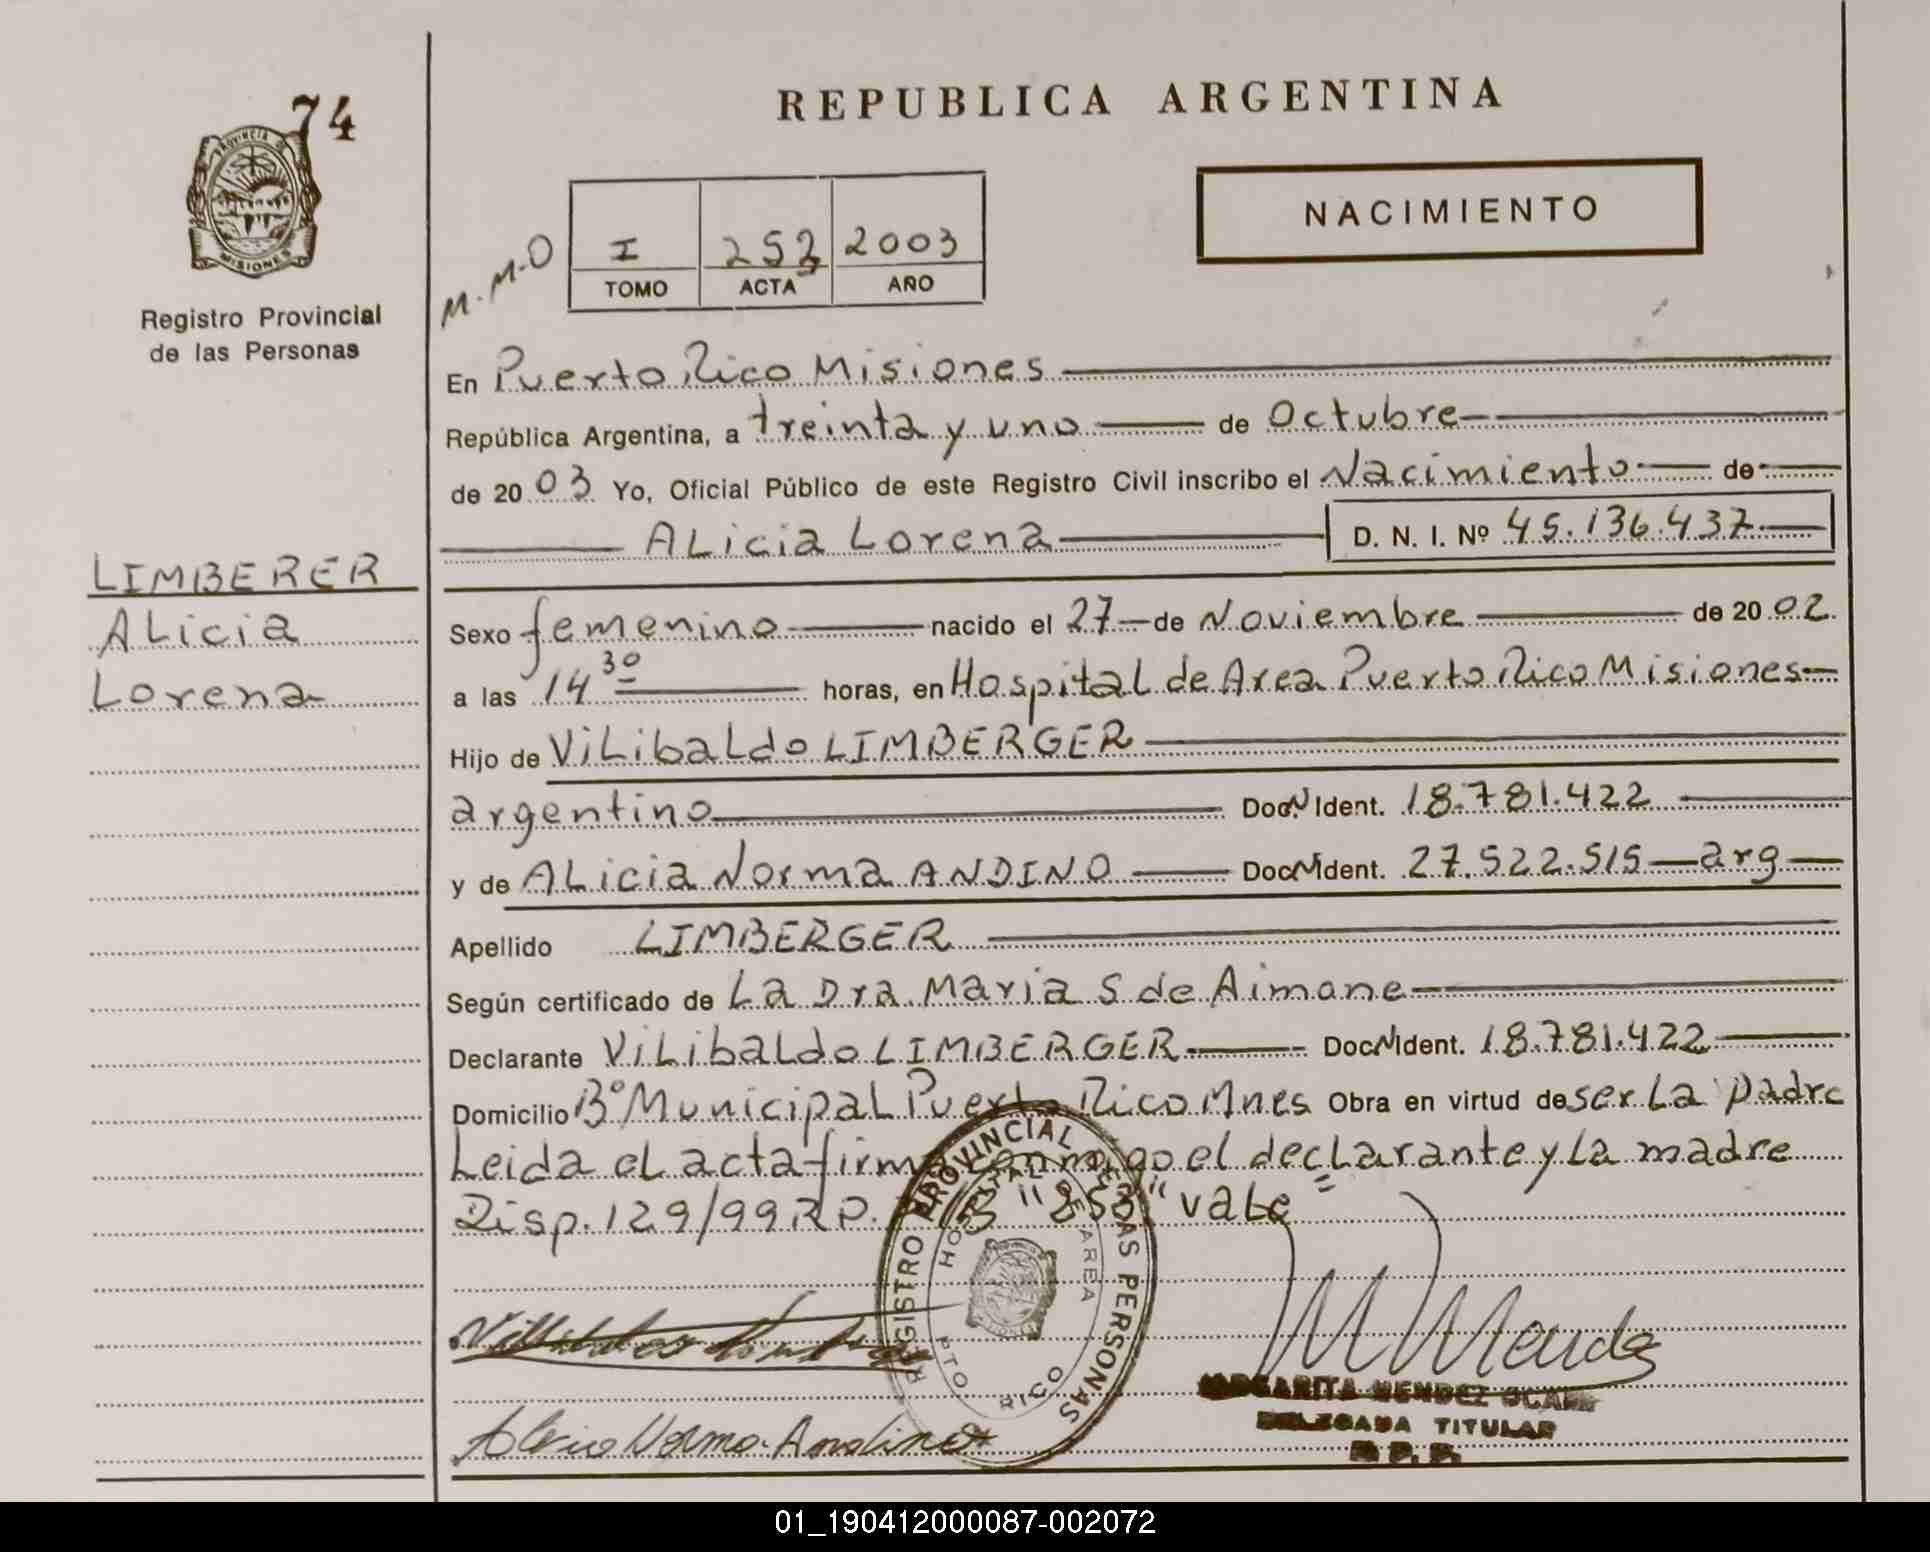 74
PROVINCIA DE
MISIONES
Registro Provincial
de las Personas
LIMBERER
ALicia
Lorena
REPUBLICA ARGENTINA
NACIMIENTO
M.M.O
I 253 2003
TOMO ACTA AÑO
En Puerto Rico Misiones
República Argentina, a treinta y uno de Octubre
de 2003 Yo, Oficial Público de este Registro Civil inscribo el Nacimiento de
ALicia Lorena D. N. I. Nº 45.136.437
Sexo femenino nacido el 27 de Noviembre de 2002
a las 14 30 horas, en HospitaL de Area Puerto Rico Misiones
Hijo de ViLibaLdo LIMBERGER
argentino Doc. N Ident. 18.781.422
y de ALicia Norma ANDINO Doc N Ident. 27.522.515 arg
Apellido LIMBERGER
Según certificado de La Dra Maria S de Aimone
Declarante ViLibaLdo LIMBERGER Doc N Ident. 18.781.422
Domicilio Bº MunicipaL Puerto Rico Mnes Obra en virtud de ser La padre
Leida eL acta firma conmigo el decLarante y La madre
Disp. 129/99 R.P. "253" vaLe
REGISTRO PROVINCIAL DE LAS PERSONAS
HOSPITAL DE AREA
PTO RICO
Alicia Norma Andino
M Mendez
MARGARITA MENDEZ OCAM
DELEGADA TITULAR
R. P. P.
01_190412000087-002072